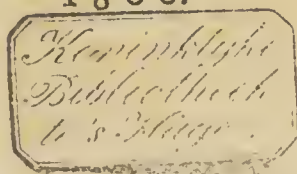 1800.
Koninklijke
Bibliotheek
te 's Hage.